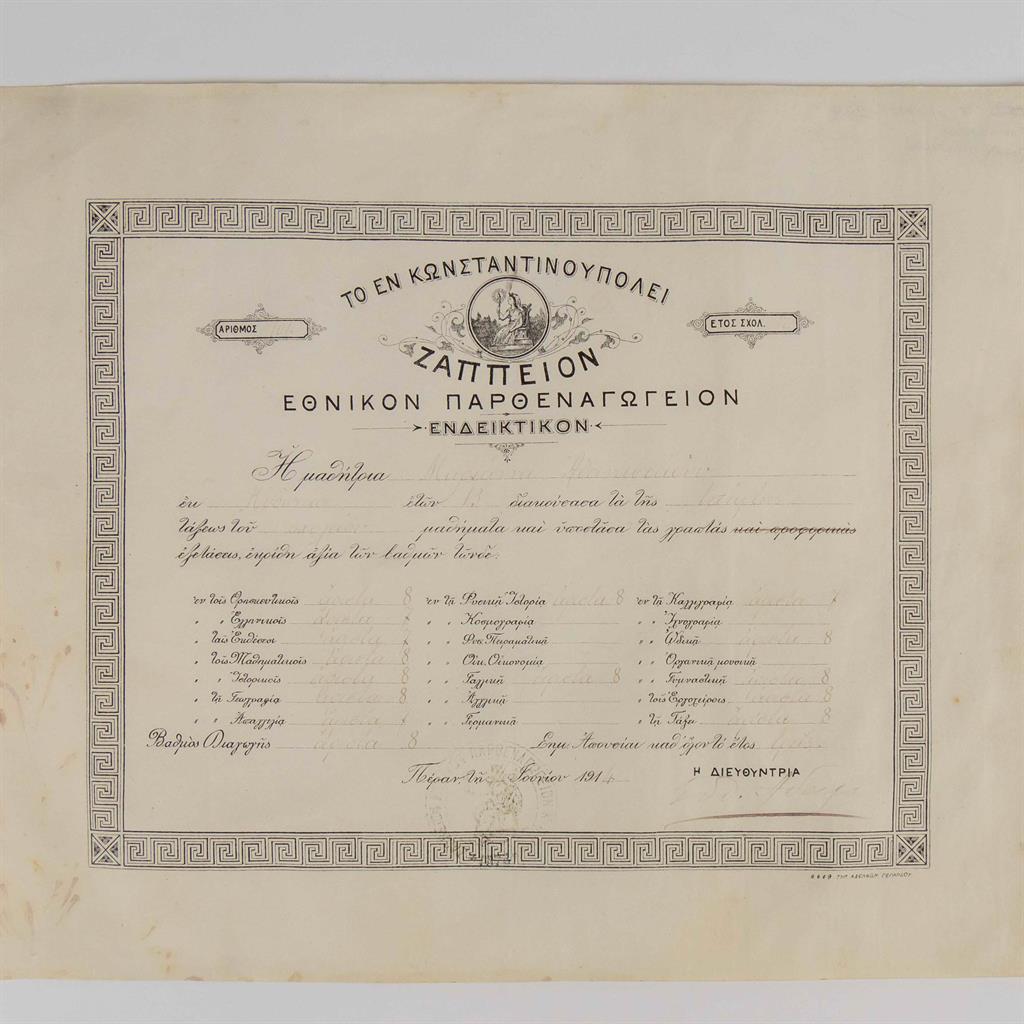 ΤΟ ΕΝ ΚΩΝΣΤΑΝΤΙΝΟΥΠΟΛΕΙ
ΑΡΙΘΜΟΣ
ΕΤΟΣ ΣΧΟΛ.
ΖΑΠΠΕΙΟΝ
ΕΘΝΙΚΟΝ ΠΑΡΘΕΝΑΓΩΓΕΙΟΝ
ΕΝΔΕΙΚΤΙΚΟΝ
Ἡ μαθήτρια
ἐκ ἐτῶν 13 διακούσασα τὰ τῆς
τάξεως τοῦ μαθήματα καὶ ὑποστᾶσα τὰς γραπτάς καὶ προφορικὰς
ἐξετάσεις, ἐκρίθη ἀξία τῶν βαθμῶν τῶνδε:
ἐν τοῖς Θρησκευτικοῖς ἄριστα 8 ἐν τῇ Φυσικῇ Ἱστορίᾳ ἄριστα 8 ἐν τῇ Καλλιγραφίᾳ ἄριστα 7
" " Ἑλληνικοῖς ἄριστα 7 " " Κοσμογραφίᾳ " " Ἰχνογραφίᾳ
" ταῖς Ἐκθέσεσι ἄριστα 7 " " Φυσ. Πειραματικῇ " " ᾨδικῇ ἄριστα 8
" τοῖς Μαθηματικοῖς ἄριστα 8 " " Οἰκ. Οἰκονομίᾳ " " Ὀργανικῇ μουσικῇ
" " Ἱστορικοῖς ἄριστα 8 " " Γαλλικῇ ἄριστα 8 " " Γυμναστικῇ ἄριστα 8
" τῇ Γεωγραφίᾳ ἄριστα 8 " " Ἀγγλικῇ " τοῖς Ἐργοχείροις ἄριστα 8
" " Ἀπαγγελίᾳ ἄριστα 7 " " Γερμανικῇ " τῇ Τάξει ἄριστα 8
Βαθμὸς Διαγωγῆς ἄριστα 8 Σημ. Ἀπουσίαι καθ' ὅλον τὸ ἔτος
Πέραν, τῇ Ἰουνίου 1914
Η ΔΙΕΥΘΥΝΤΡΙΑ
6669 ΤΥΠ. ΑΔΕΛΦΩΝ ΓΕΡΑΡΔΟΥ